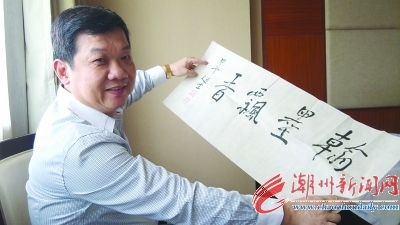 翰墨飄香
潮州新闻网
www.chaozhoudaily.com